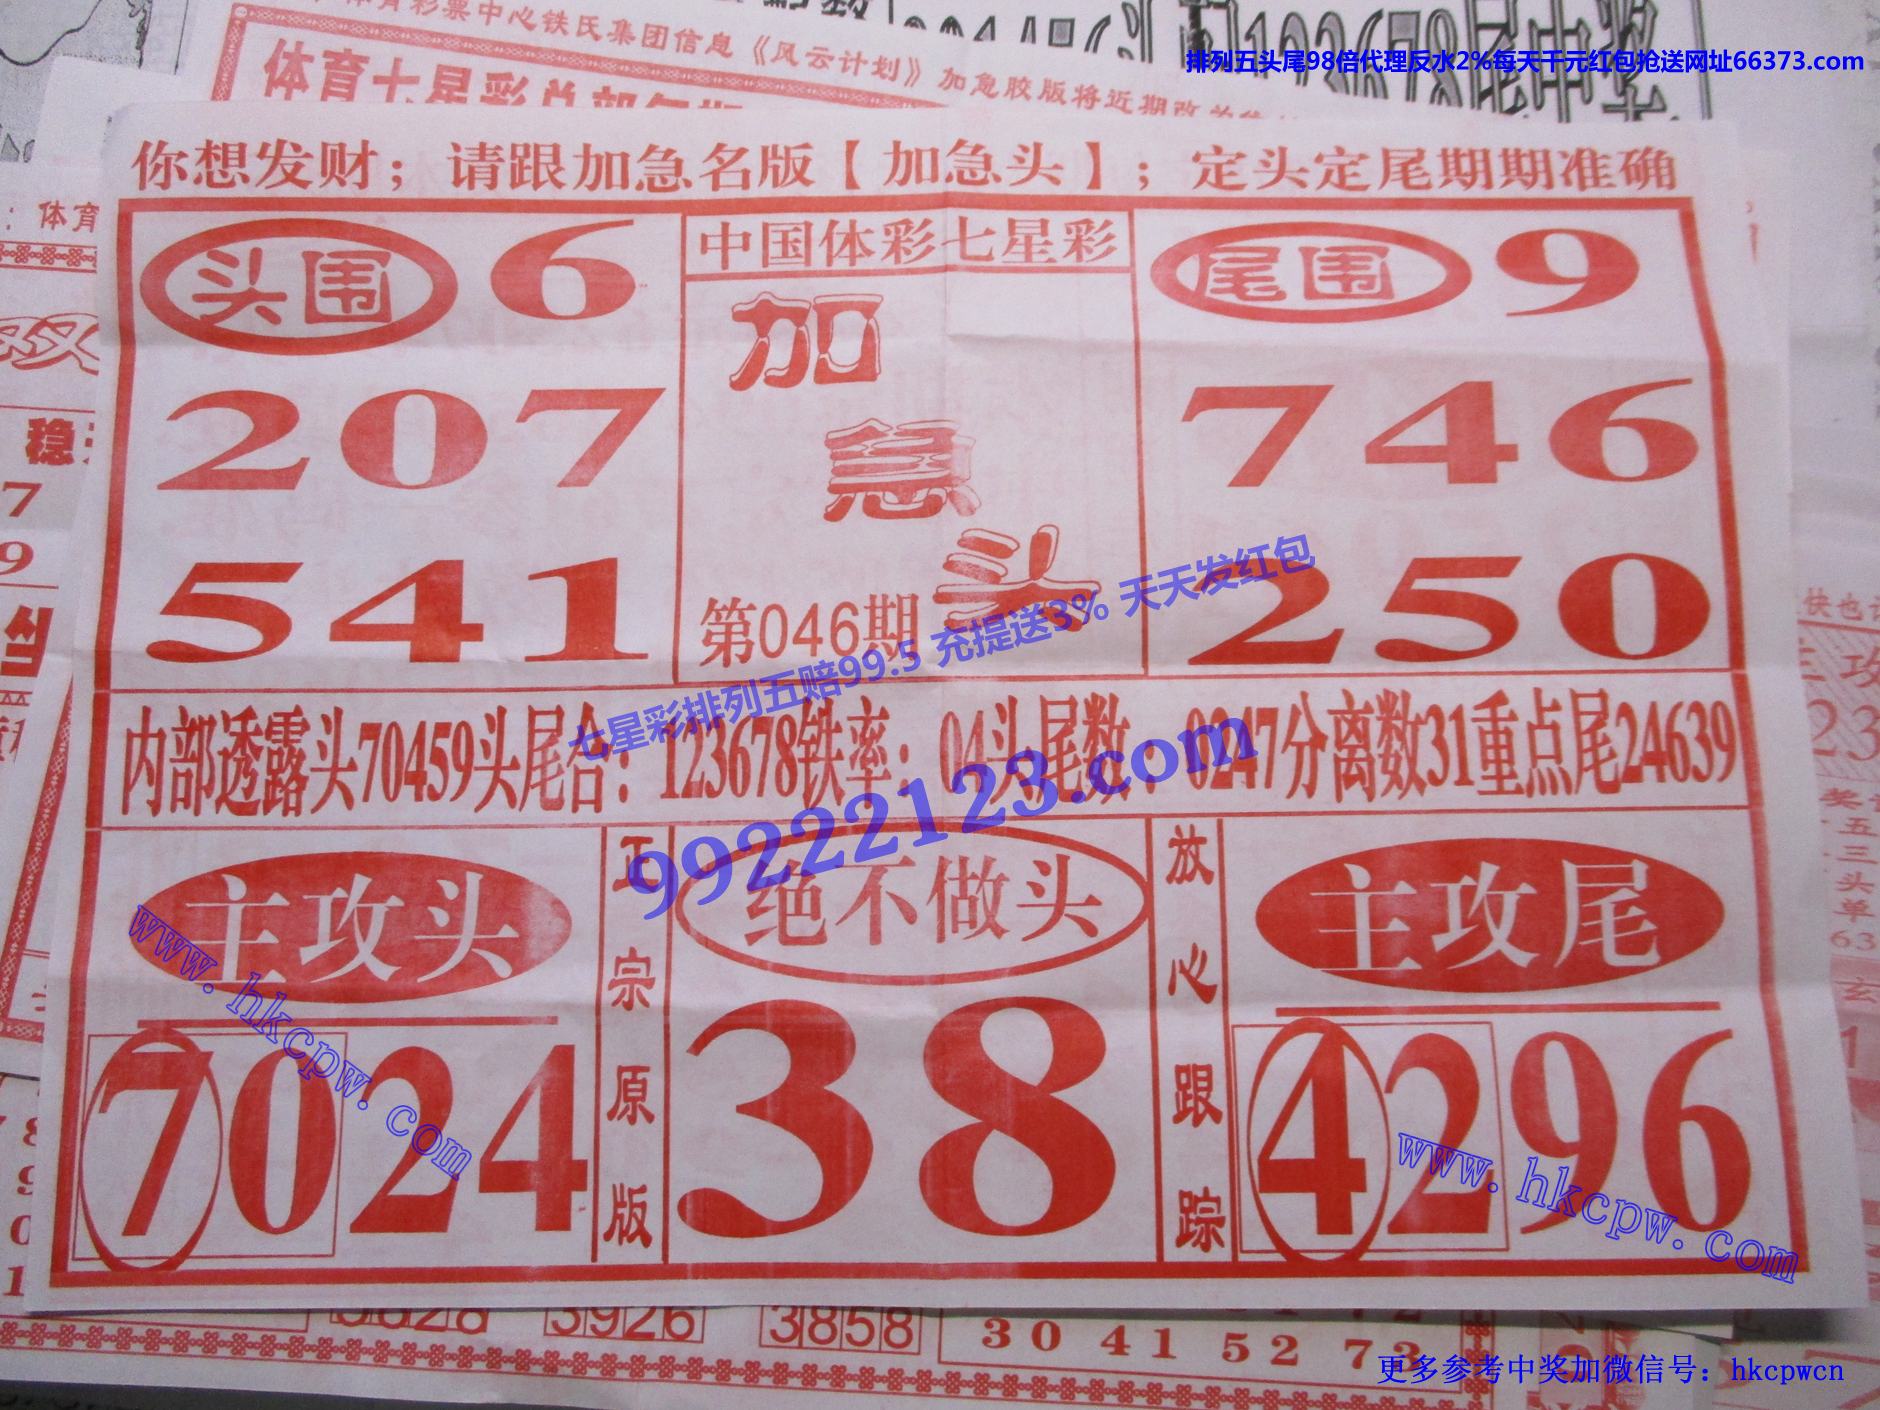 彩票中心铁氏集团信息《风云计划》加急胶版将近期改
体育七星彩总部
排列五头尾98倍代理反水2%每天千元红包抢送网址66373.com
你想发财；请跟加急名版【加急头】；定头定尾期期准确
头围 6
207
541
中国体彩七星彩
加急头
第046期
尾围 9
746
250
七星彩排列五赔99.5 充提送3% 天天发红包
内部透露头70459头尾合：123678铁率：04头尾数：0247分离数31重点尾24639
99222123.com
主攻头
7024
正宗原版
绝不做头
38
放心跟踪
主攻尾
4296
www.hkcpw.com
www.hkcpw.com
3926
3858
30 41 52 73
更多参考中奖加微信号：hkcpwcn